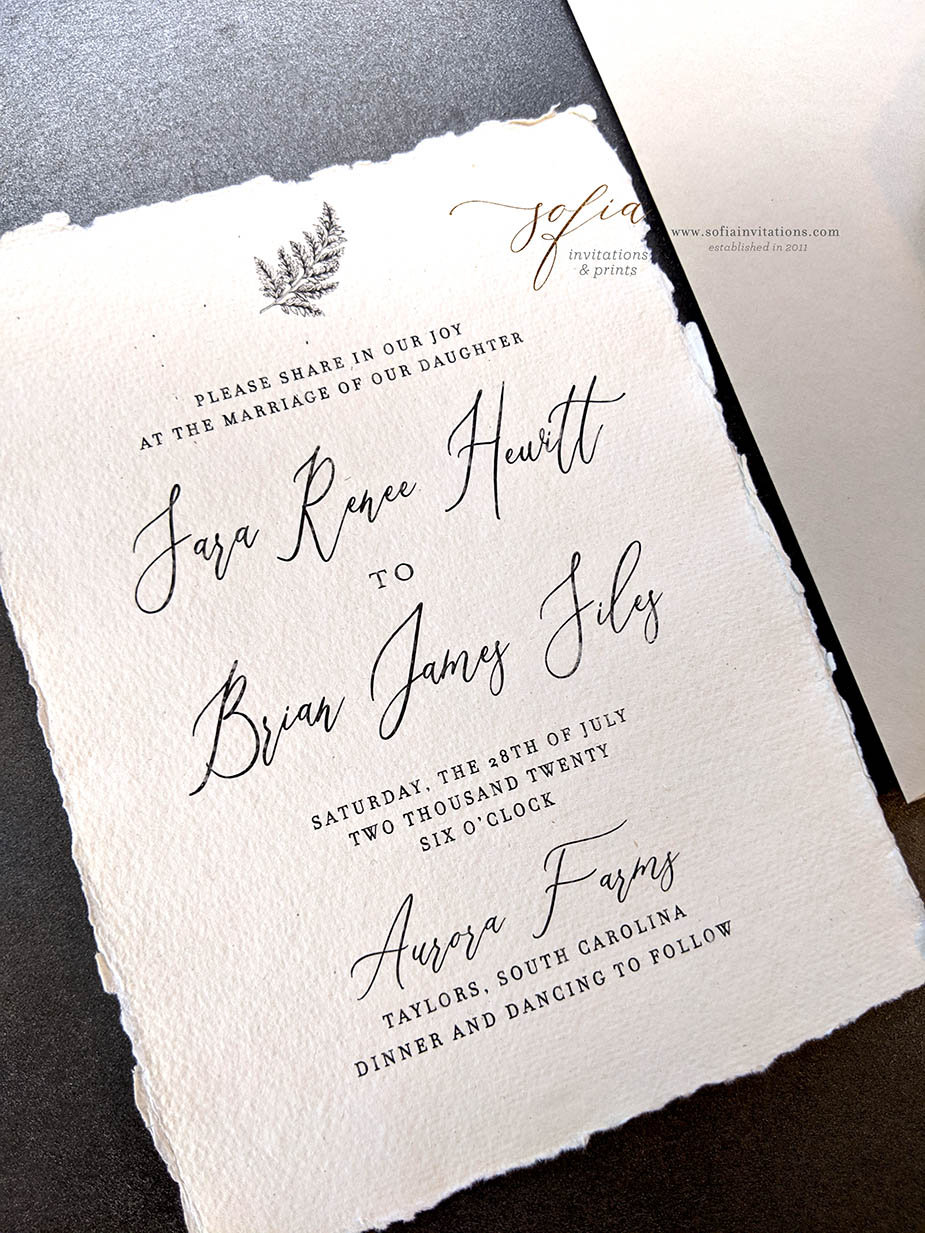 sofia
invitations
& prints
www.sofiainvitations.com
established in 2011
PLEASE SHARE IN OUR JOY
AT THE MARRIAGE OF OUR DAUGHTER
Sara Renee Hewitt
TO
Brian James Siles
SATURDAY, THE 28TH OF JULY
TWO THOUSAND TWENTY
SIX O'CLOCK
Aurora Farms
TAYLORS, SOUTH CAROLINA
DINNER AND DANCING TO FOLLOW